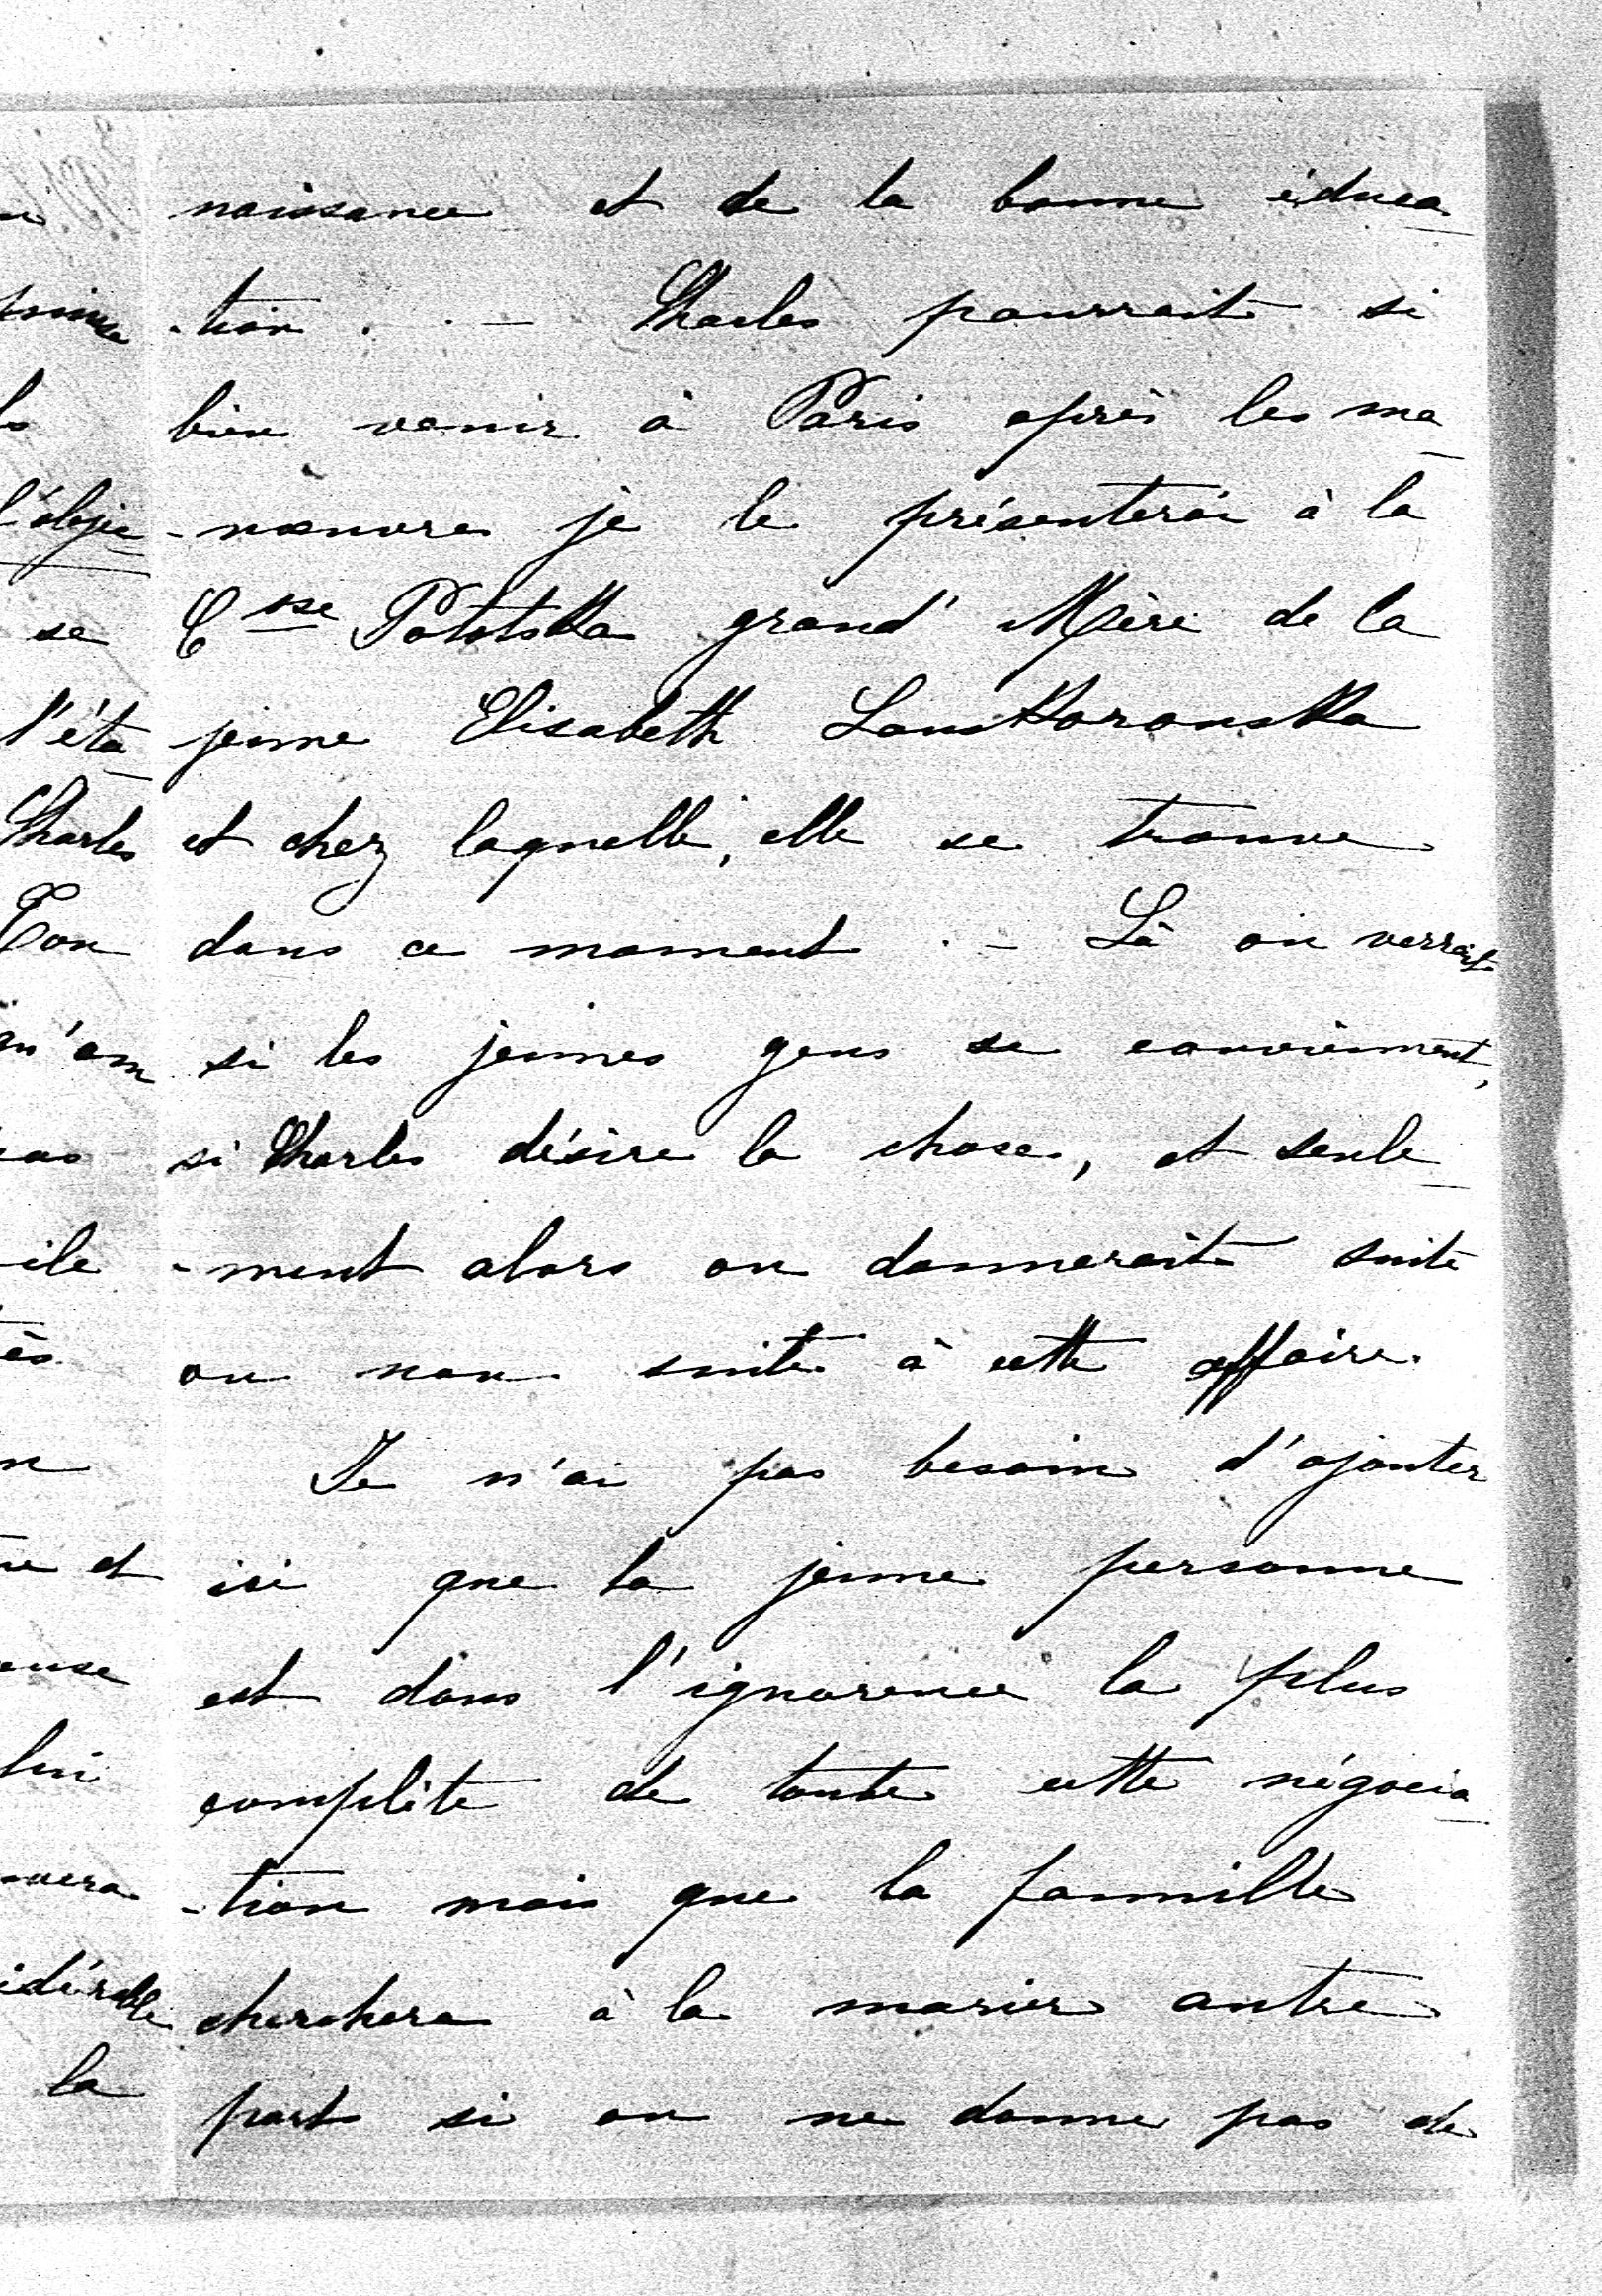 naissance et de la bonne éduca
-tion. - Charles pourrait si
bien venir à Paris après les ma
-nœuvres je le présenterai à la
Csse Pototska grand' Mère de la
jeune Elisabeth Lanskoronska
et chez laquelle, elle se trouve
dans ce moment. - Là on verrait
si les jeunes gens se conviennent,
si Charles désire la chose, et seule
-ment alors on donnerait suite
ou non suite à cette affaire.
Je n'ai pas besoin d'ajouter
ici que la jeune personne
est dans l'ignorence la plus
complète de toute cette négocia
-tion mais que la famille
cherchera à la marier autre
part si on ne donne pas de